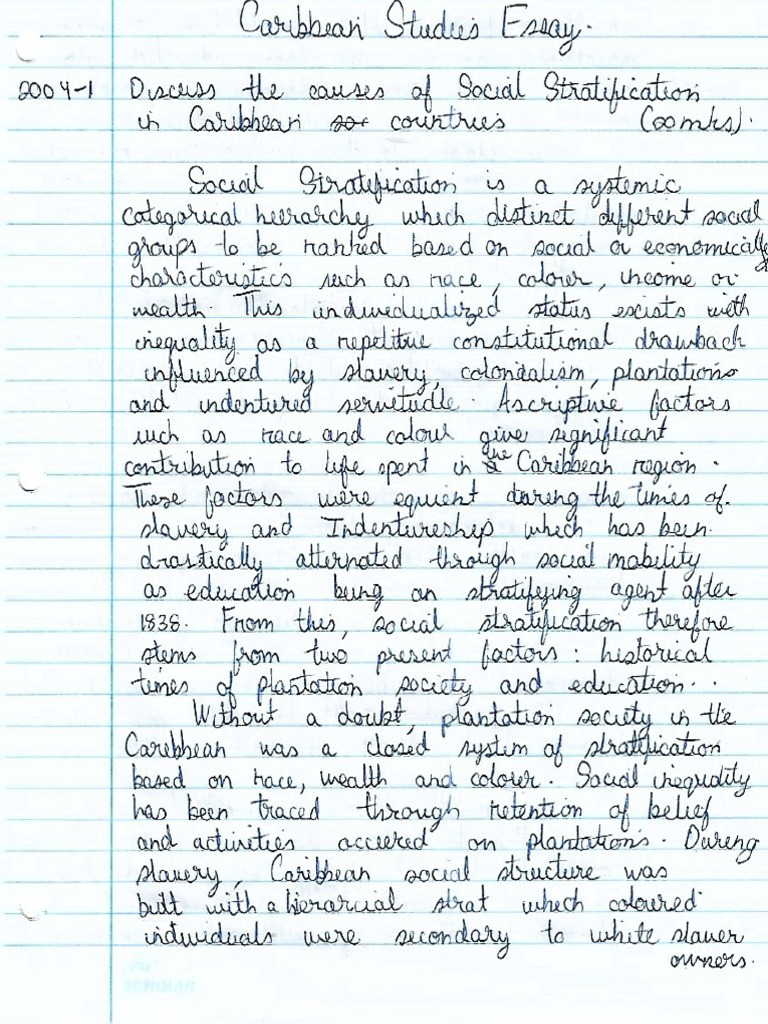 Caribbean Studies Essay.
2004-1 Discuss the causes of Social Stratification
in Caribbean so countries (20mks).
Social Stratification is a systemic
categorical heirarchy which distinct different social
groups to be ranked based on social or economically
characteristics such as race, colour, income or
wealth. This individualized status excists with
inequality as a repetitive constitutional drawback
influenced by slavery, colonialism, plantations
and indentured servitudle. Ascriptive factors
such as race and colour give significant
contribution to life spent in the Caribbean region.
These factors were equient during the times of
slavery and Indentureship which has been
drastically alternated through social mobility
as education being an stratifying agent after
1838. From this, social stratification therefore
stems from two present factors: historical
times of plantation society and education..
Without a doubt, plantation society in the
Caribbean was a closed system of stratification
based on race, wealth and colour. Social inequality
has been traced through retention of belief
and activities occured on plantations. During
slavery, Caribbean social structure was
built with a hierarcial strat which coloured
individuals were secondary to white slaver
owners.